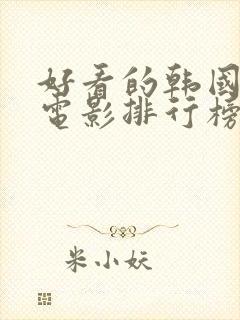 好看的韩国
电影排行榜
米小妖